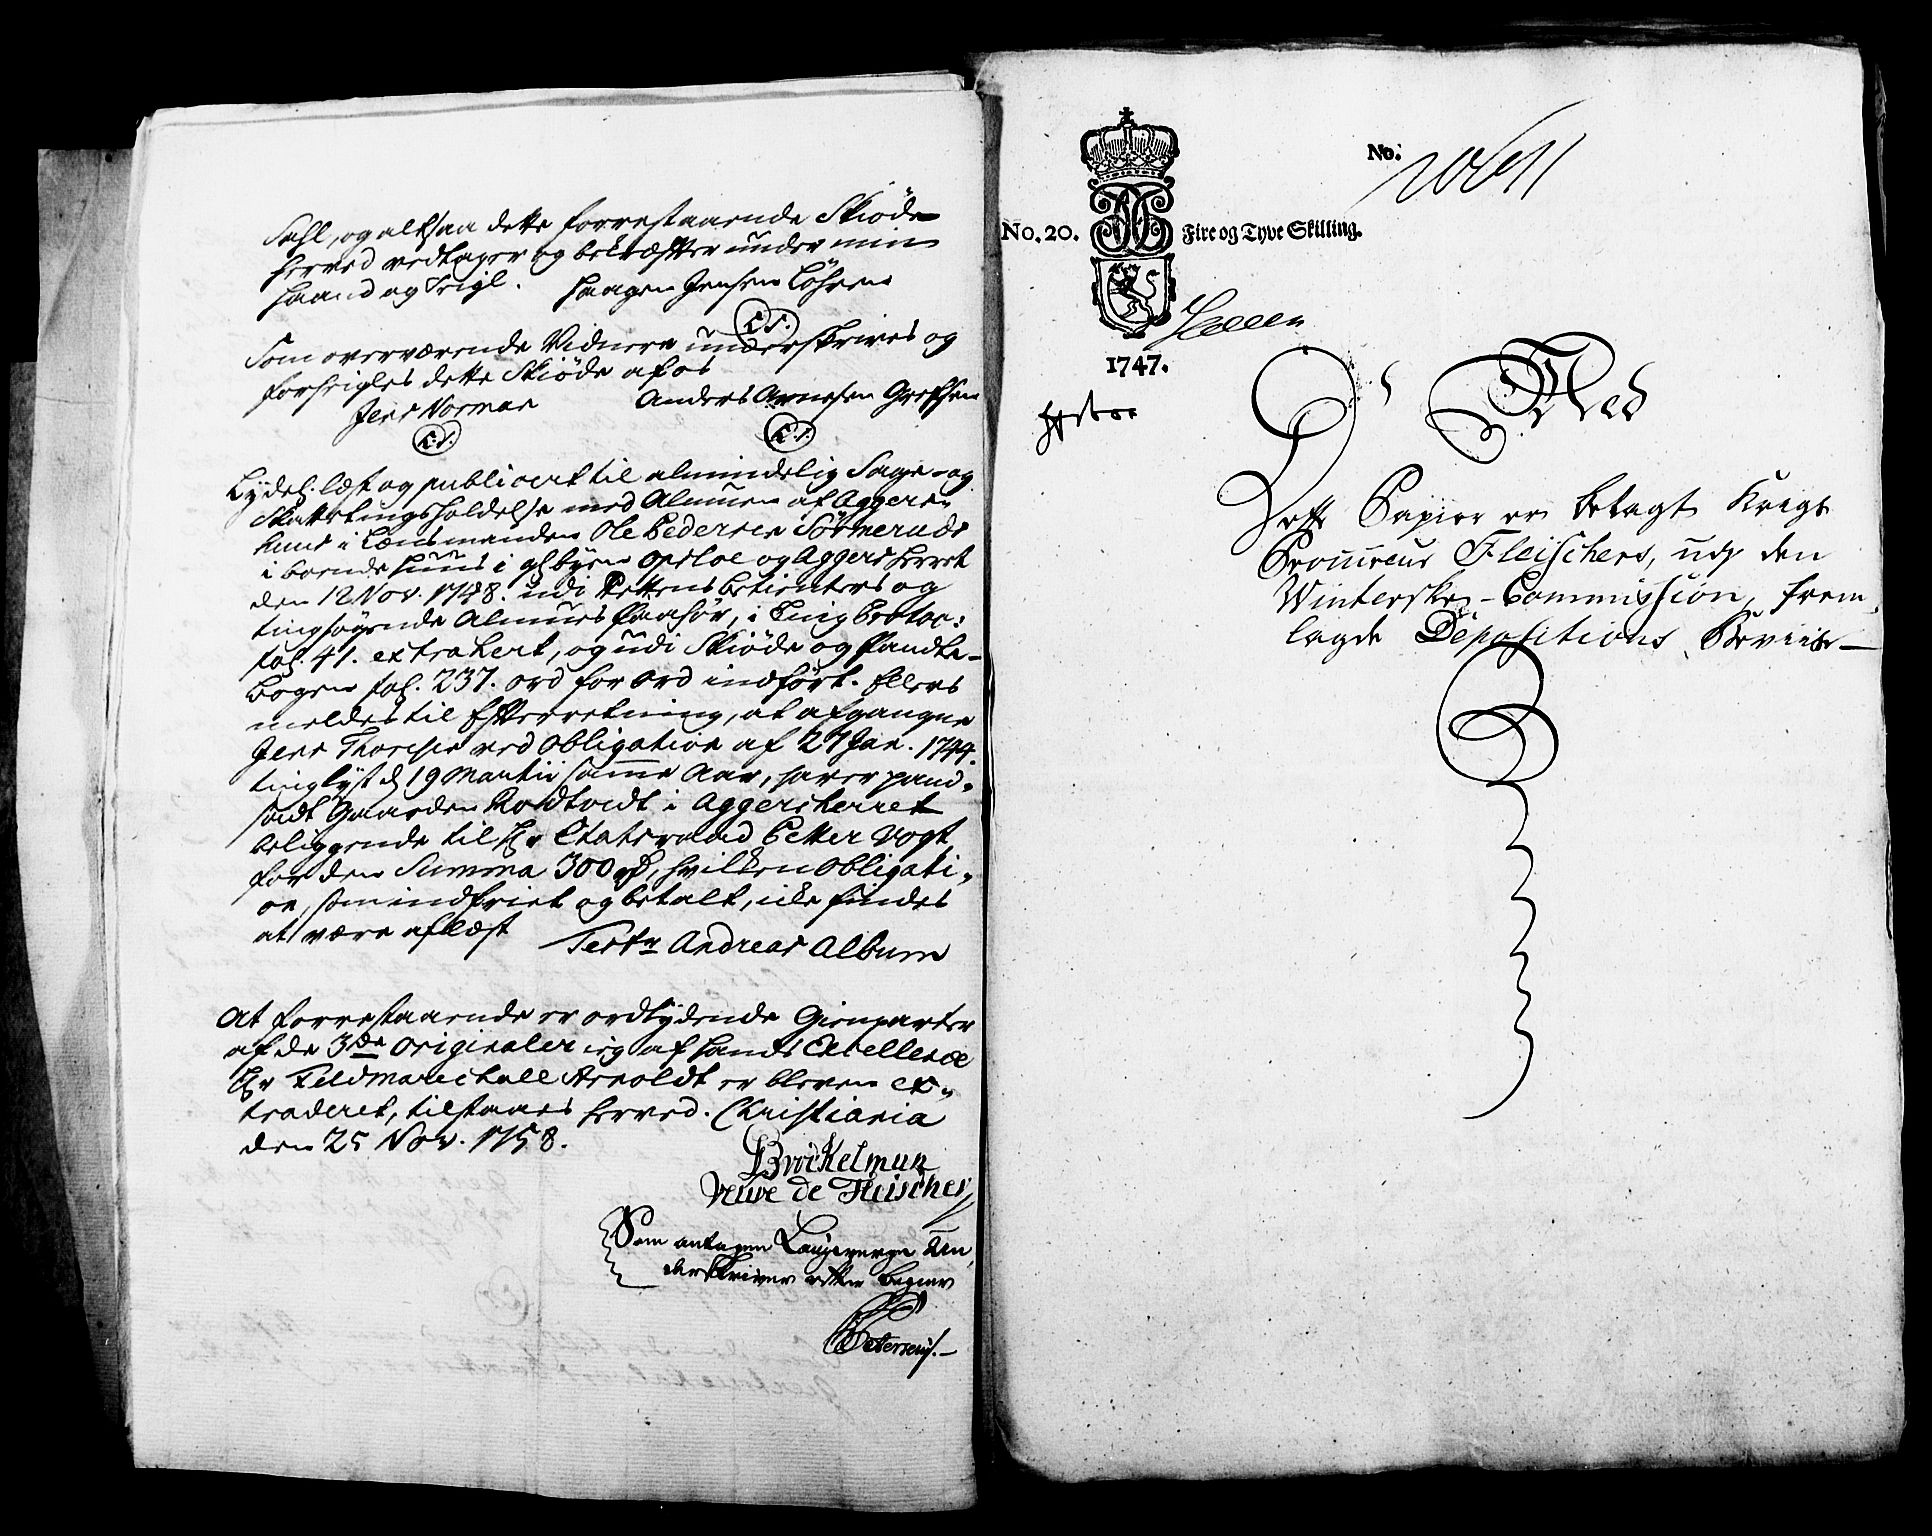 Sahl, og altsaa dette forrestaaende Skiøde
herved vedtager og bekræfter under min
Haand og Seigl. Haagen Jensen Løhren
L.S.
Som overværende Vidner underskrives og
forseigles dette Skiøde af os
Jens Norman Anders Arnesen Grefsen
L.S. L.S.
Lydel. læst og publicert til almindelig Sage- og
Skattetingsholdelse med Almuen af Aggers-
Huus i Lænsmanden Ole Pedersen
i boende Huus i gl. byen Opsloe og Aggersherret
den 12 Nov. 1748. udi Rettens betienters og
tingsøgende Almues Paahør, i Ting Protoc:
fol. 41. extrahert, og udi Skiøde og Pandte-
bogen fol. 237. ord for ord indført. Ellers
meldes til Efterretning, at afgangne
Jens Thoresen ved Obligation af 27 Jan. 1744.
tinglyst d. 19 Martii samme Aar, haver pand-
sadt Gaarden Rodtvedt i Aggersherret
beliggende til Hr Etatsraad Petter Vogt
for den Summa 300 rd, hvilken Obligati-
on, som indfriet og betalt, icke findes
at være aflæst
Test. Andreas Album
At forrestaaende er ordlydende Gienparter
af de 3de Originaler ieg af Hands Excellence
Hr Feldmarechall Arnoldt er bleven ex-
traderet, tilstaaes herved. Christiania
den 25 Nov. 1758.
Brockelman
Veuve de Fleischer
Som antagen Laugverge un-
derskriver efter begier
Petersen
No.
No. 20. Fire og Tyve Skilling.
1747.
Med
Dette Papiir er betagt Krigs
Prouireur Fleischers, udj den
Winterske Commission, frem-
lagde Depositions Beviis